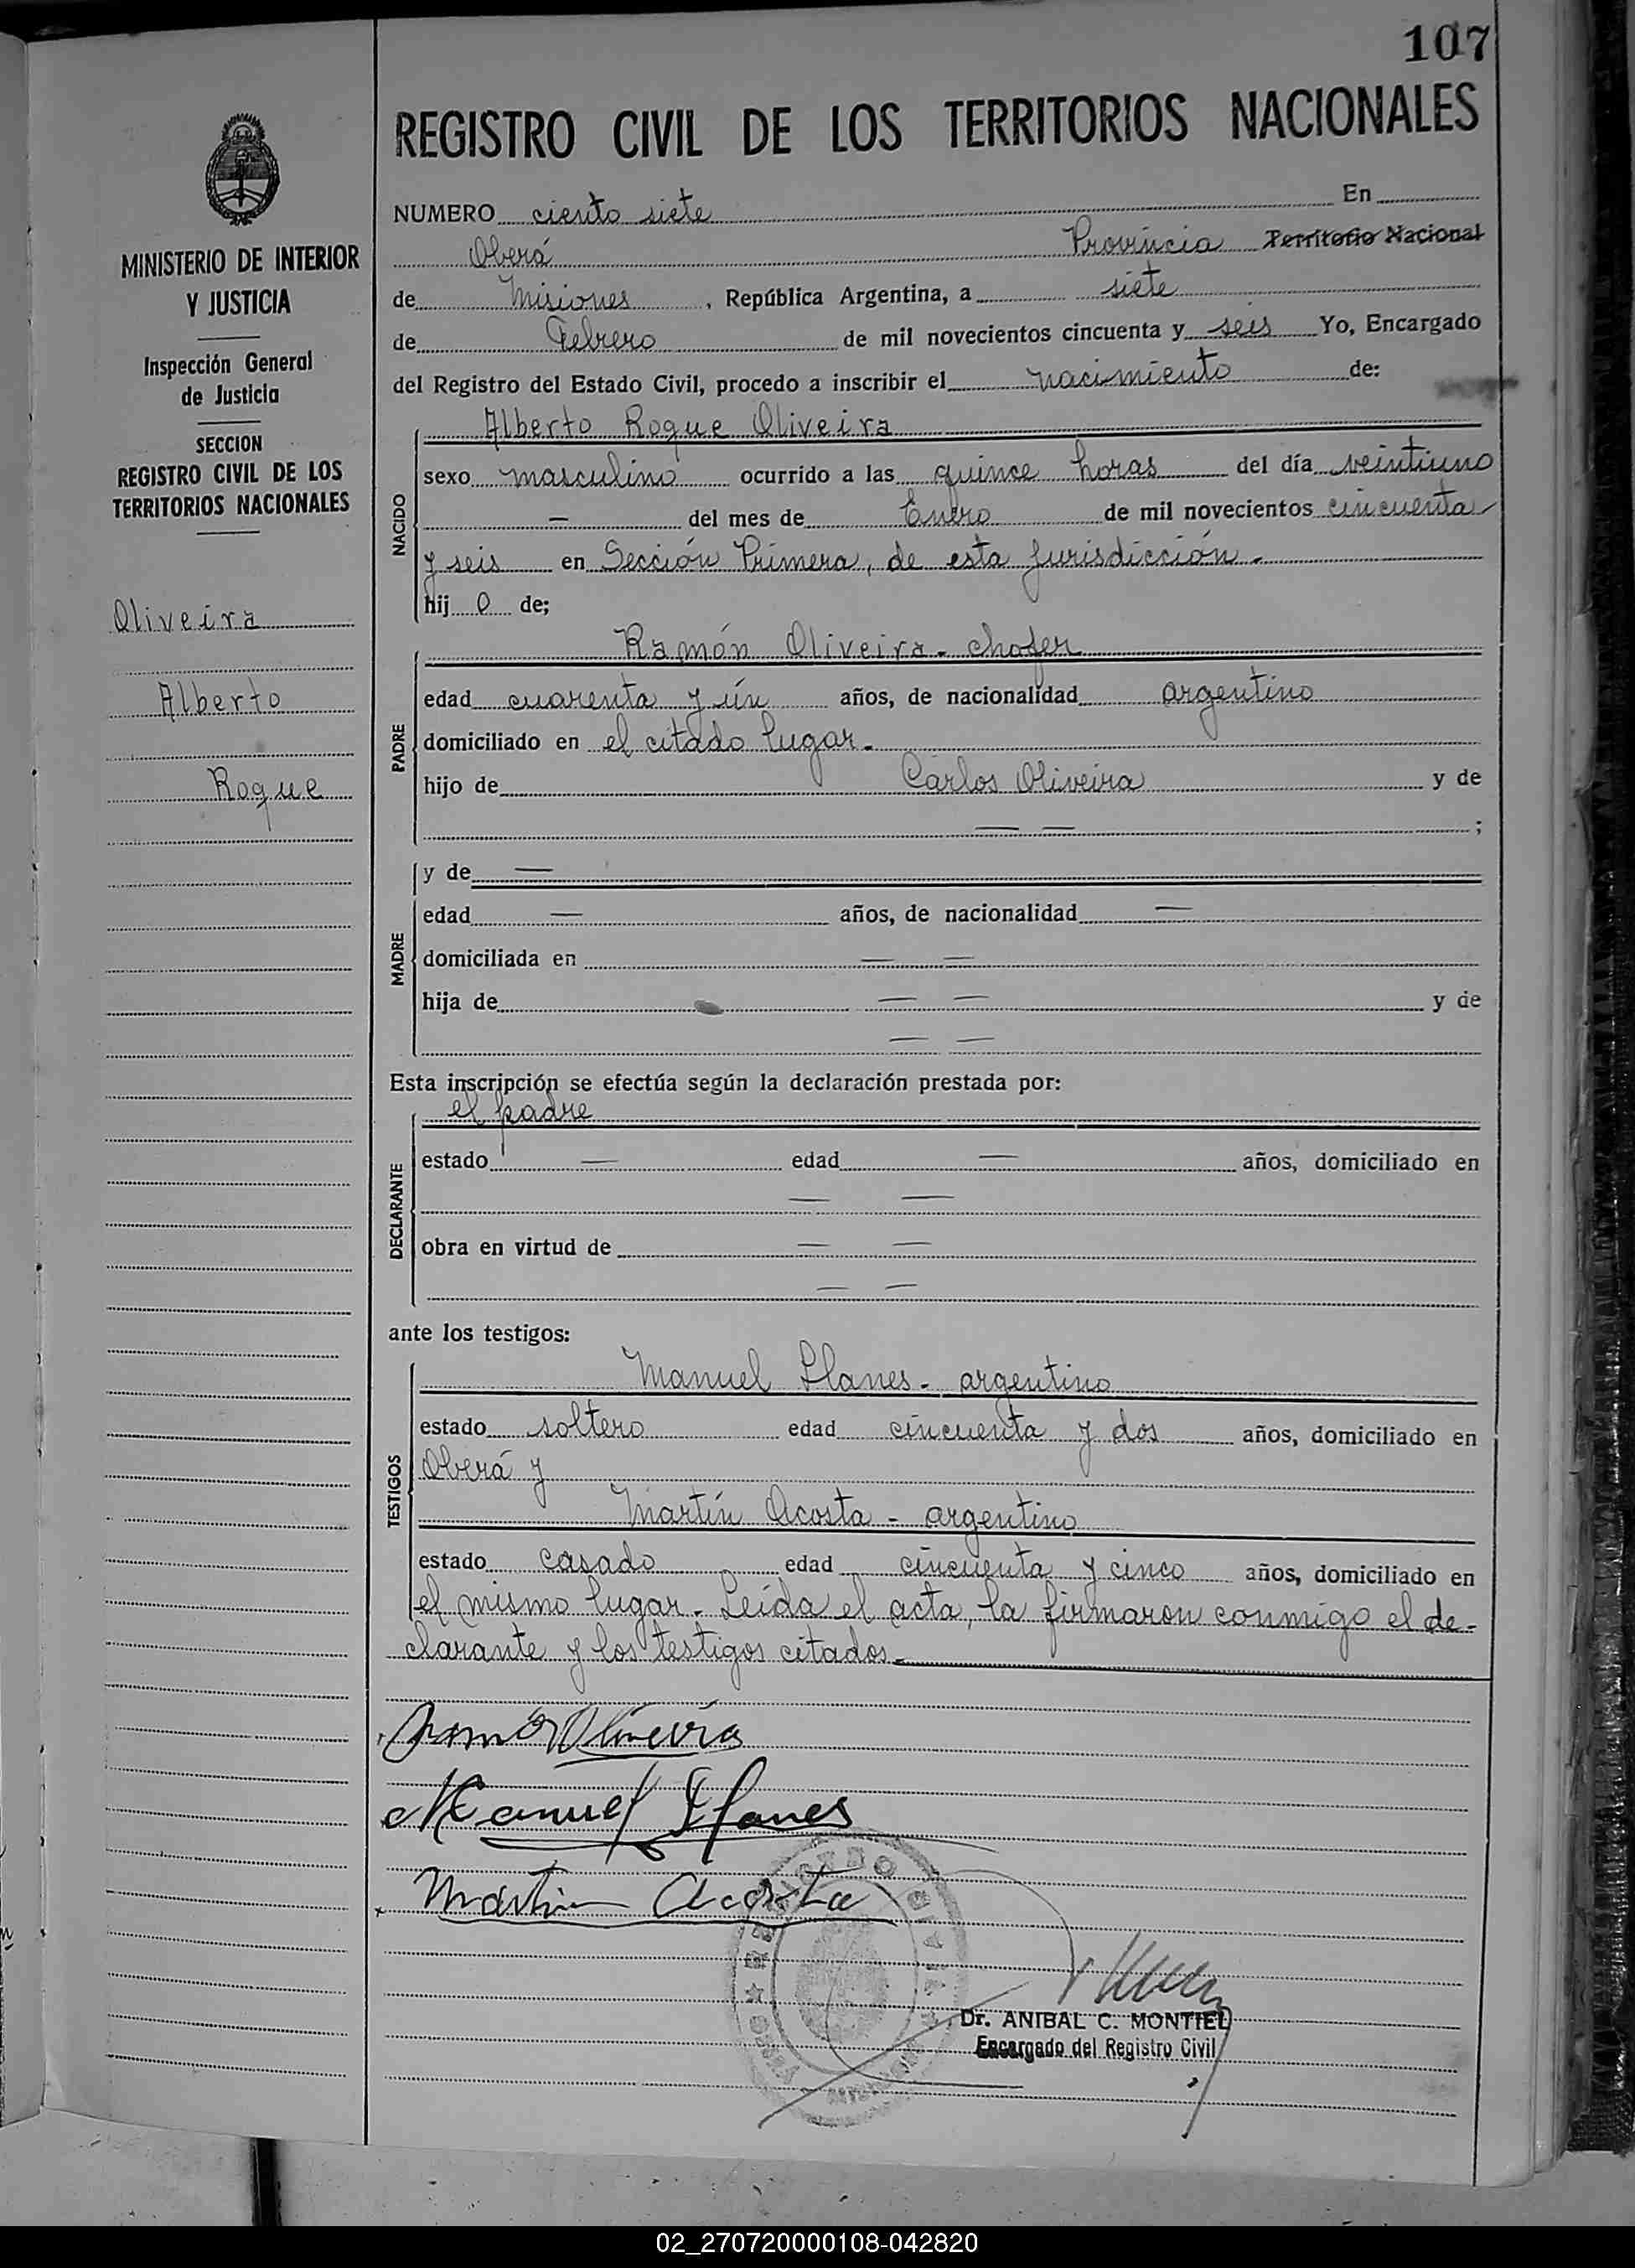 107
REGISTRO CIVIL DE LOS TERRITORIOS NACIONALES
NUMERO ciento siete En
Oberá Provincia Territorio Nacional
de Misiones, República Argentina, a siete
de Febrero de mil novecientos cincuenta y seis Yo, Encargado
del Registro del Estado Civil, procedo a inscribir el nacimiento de:
MINISTERIO DE INTERIOR
Y JUSTICIA
Inspección General
de Justicia
SECCION
REGISTRO CIVIL DE LOS
TERRITORIOS NACIONALES
Oliveira
Alberto
Roque
NACIDO
Alberto Roque Oliveira
sexo masculino ocurrido a las quince horas del día veintiuno
— del mes de Enero de mil novecientos cincuenta
y seis en Sección Primera, de esta jurisdicción.-
hij o de;
PADRE
Ramón Oliveira - chofer
edad cuarenta y ún años, de nacionalidad argentino
domiciliado en el citado lugar.-
hijo de Carlos Oliveira y de
— — ;
MADRE
y de —
edad — años, de nacionalidad —
domiciliada en — —
hija de — — y de
— —
Esta inscripción se efectúa según la declaración prestada por:
DECLARANTE
el padre
estado — edad — años, domiciliado en
— —
obra en virtud de — —
— —
ante los testigos:
TESTIGOS
Manuel Llanes - argentino
estado soltero edad cincuenta y dos años, domiciliado en
Oberá y
Martín Acosta - argentino
estado casado edad cincuenta y cinco años, domiciliado en
el mismo lugar.- Leída el acta, la firmaron conmigo el de-
clarante y los testigos citados.-
Ramón Oliveira
Manuel Llanes
Martin Acosta
REGISTRO CIVIL
Dr. ANIBAL C. MONTIEL
Encargado del Registro Civil
02_270720000108-042820